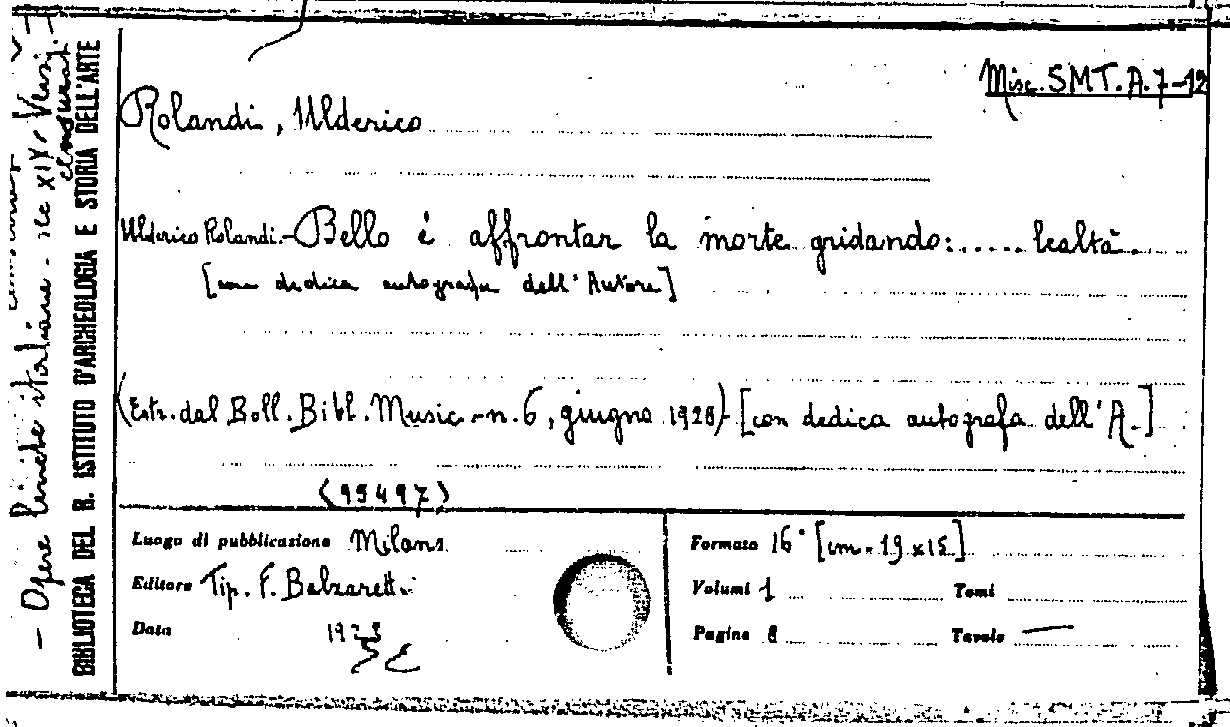 Misc. SMT. A. 7-12
Rolandi, Ulderico
Ulderico Rolandi. - Bello é affrontar la morte gridando:..... lealtà.
[con dedica autografa dell'Autore]
(Estr. dal Boll. Bibl. Music. - n. 6, giugno 1928) - [con dedica autografa dell'A.]
(99497)
Luogo di pubblicazione Milano
Editore Tip. F. Balzaretti
Data 1928
Formato 16° [cm. 19 x 15]
Volumi 1 Tomi
Pagine 8 Tavole —
BIBLIOTECA DEL R. ISTITUTO D'ARCHEOLOGIA E STORIA DELL'ARTE
- Opere liriche italiane - sec XIX